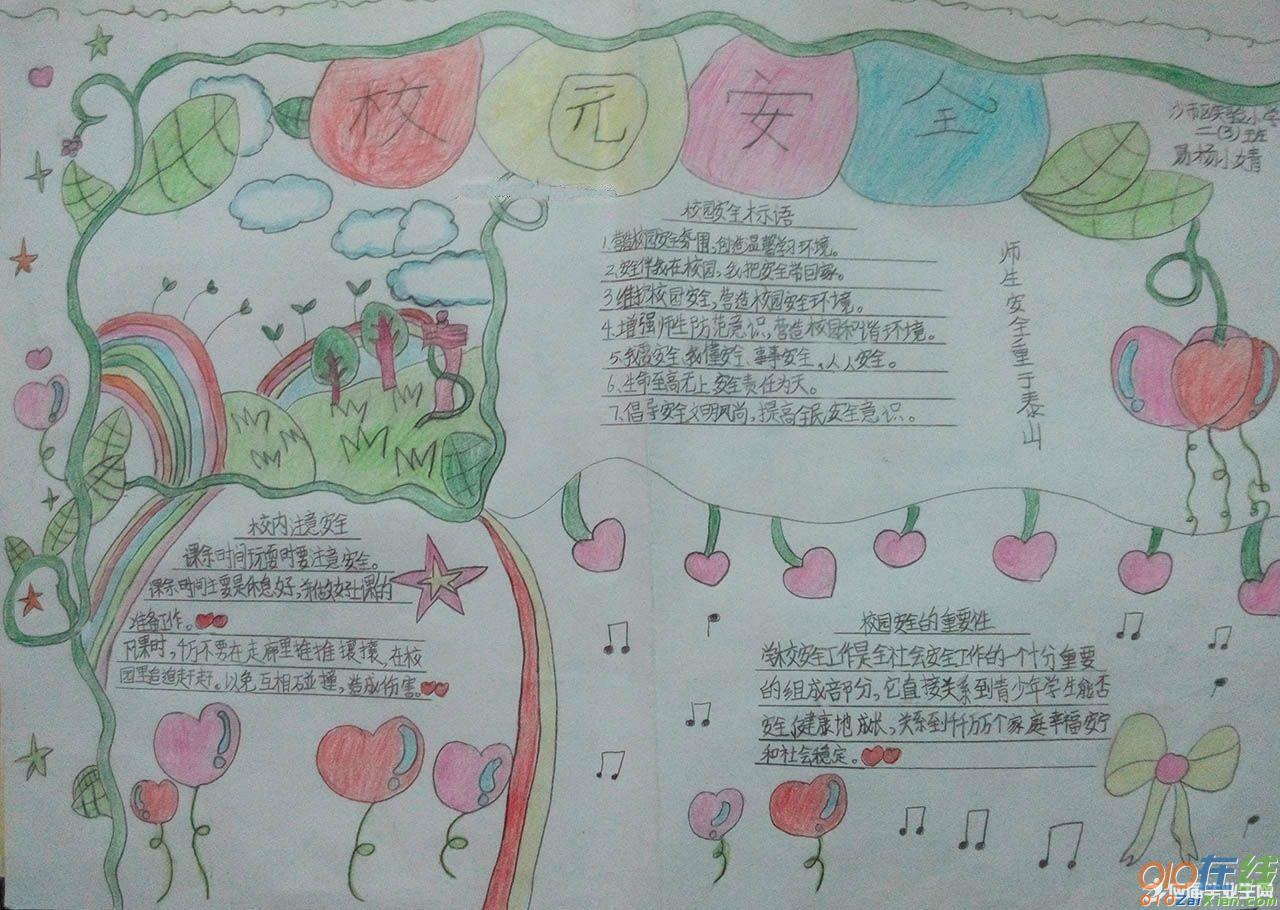 校园安全
沙市区实验小学
二(3)班
易杨小婧
校园安全标语
1.营造校园安全氛围,创造温馨学习环境。
2.安全伴我在校园,我把安全带回家。
3.维护校园安全,营造校园安全环境。
4.增强师生防范意识,营造校园和谐环境。
5.我要安全,我懂安全、事事安全、人人安全。
6.生命至高无上,安全责任为天。
7.倡导安全文明风尚,提高全民安全意识。
师生安全重于泰山
校内注意安全
课余时间玩耍时要注意安全。
课余时间主要是休息好,并做好上课的
准备工作。
下课时,千万不要在走廊里推推攘攘,在校
园里追追赶赶。以免互相碰撞,造成伤害。
校园安全的重要性
学校安全工作是全社会安全工作的一个十分重要
的组成部分。它直接关系到青少年学生能否
安全、健康地成长,关系到千千万万个家庭幸福安宁
和社会稳定。
010在线
010ZaiXian.com